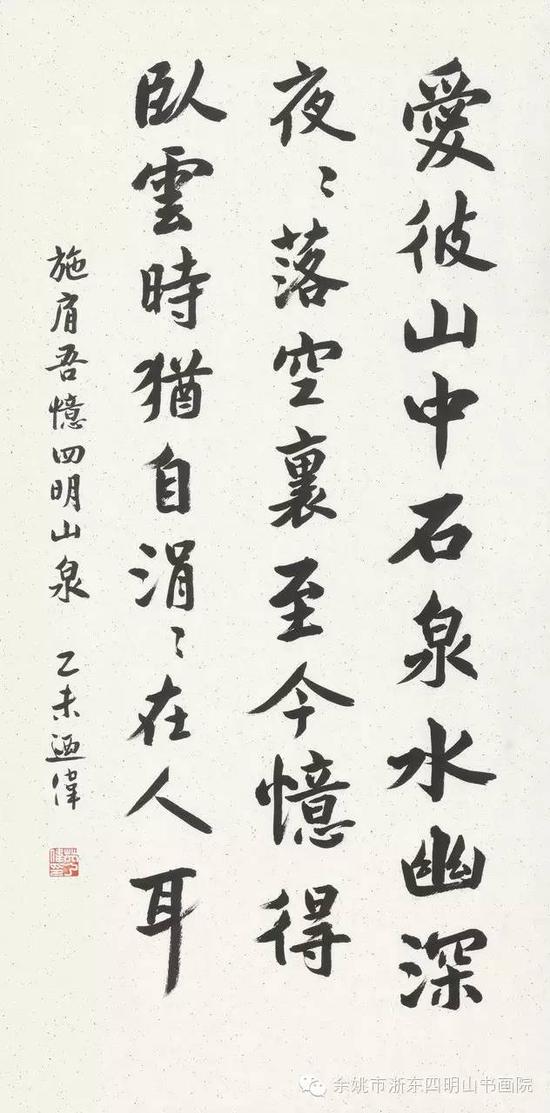 愛彼山中石泉水幽深
夜〻落空裏至今憶得
臥雲時猶自涓〻在人耳
施肩吾憶四明山泉 乙未迺偉
余姚市浙东四明山书画院